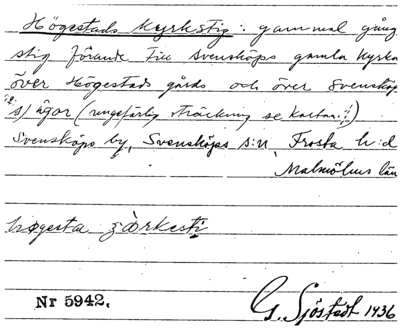 Högestads kyrkstig: gammal gång
stig förande till Svensköps gamla kyrka
över Högestads gårds och över Svensköp
s/ ägor (ungefärlig sträckning se kartan!)
Svensköps by, Svensköps s:n, Frosta h:d
Malmöhus län
høgesta
Nr 5942.
G. Sjöstedt 1936